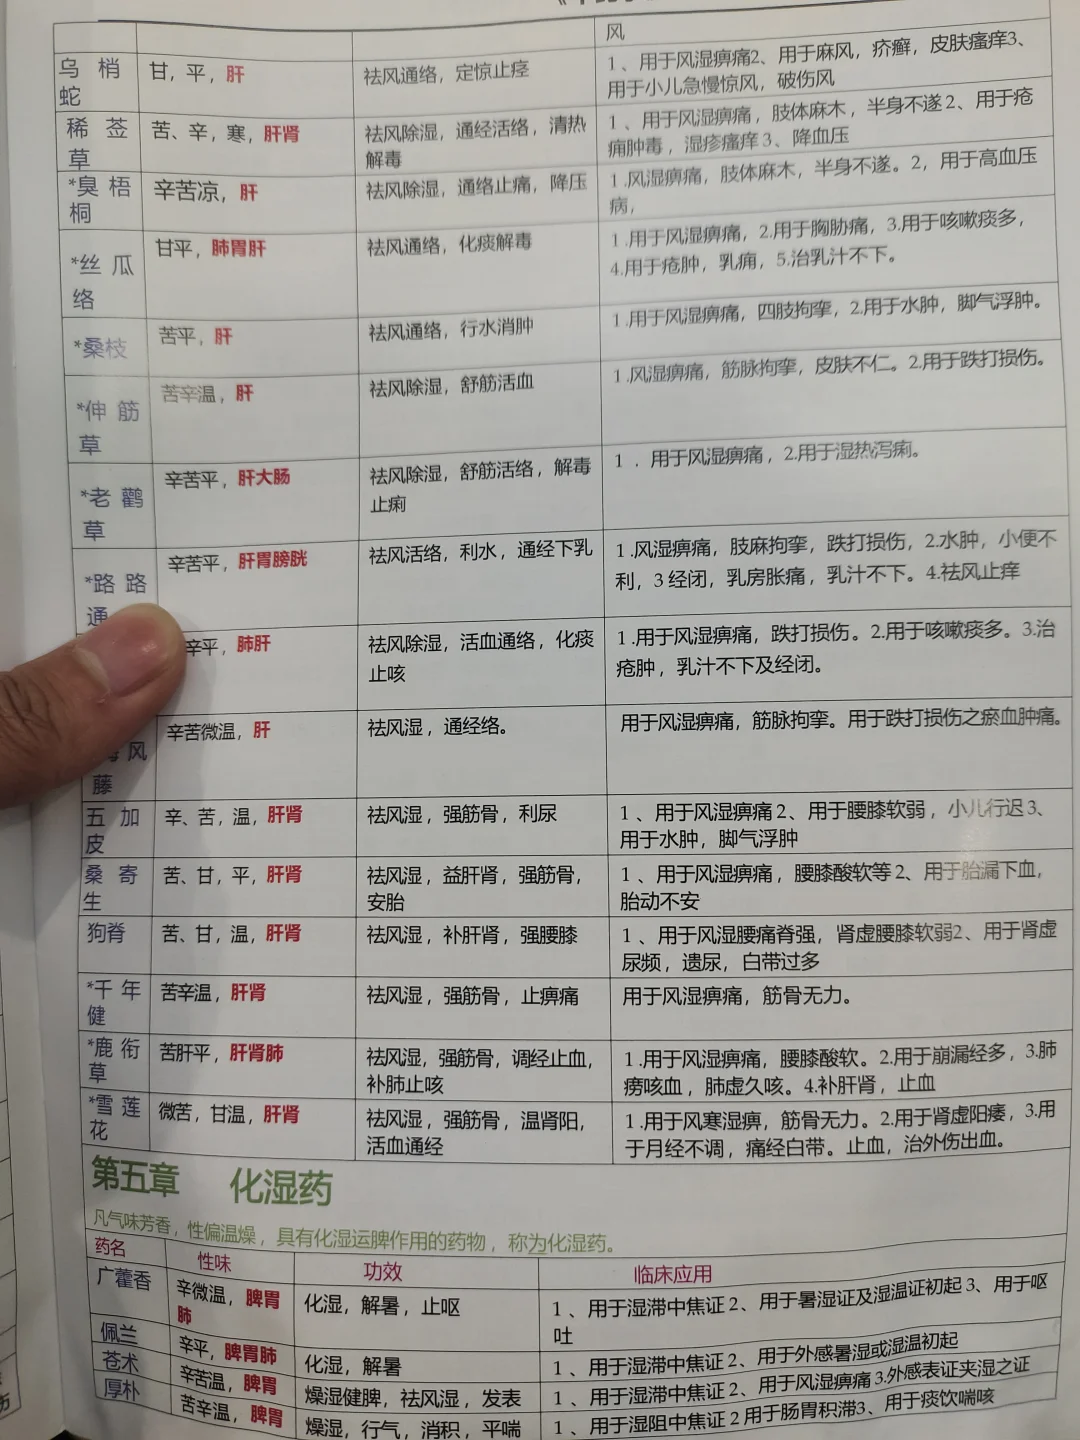 风
乌梢 甘，平，肝 祛风通络，定惊止痉 1、用于风湿痹痛2、用于麻风，疥癣，皮肤瘙痒3、
蛇 用于小儿急慢惊风，破伤风
稀莶 苦、辛，寒，肝肾 祛风除湿，通经活络，清热 1、用于风湿痹痛，肢体麻木，半身不遂2、用于疮
草 解毒 痈肿毒，湿疹瘙痒3、降血压
*臭梧 辛苦凉，肝 祛风除湿，通络止痛，降压 1.风湿痹痛，肢体麻木，半身不遂。2，用于高血压
桐 病，
*丝瓜 甘平，肺胃肝 祛风通络，化痰解毒 1.用于风湿痹痛，2.用于胸胁痛，3.用于咳嗽痰多，
络 4.用于疮肿，乳痈，5.治乳汁不下。
*桑枝 苦平，肝 祛风通络，行水消肿 1.用于风湿痹痛，四肢拘挛，2.用于水肿，脚气浮肿。
*伸筋 苦辛温，肝 祛风除湿，舒筋活血 1.风湿痹痛，筋脉拘挛，皮肤不仁。2.用于跌打损伤。
草
*老鹳 辛苦平，肝大肠 祛风除湿，舒筋活络，解毒 1．用于风湿痹痛，2.用于湿热泻痢。
草 止痢
*路路 辛苦平，肝胃膀胱 祛风活络，利水，通经下乳 1.风湿痹痛，肢麻拘挛，跌打损伤，2.水肿，小便不
通 利，3经闭，乳房胀痛，乳汁不下。4.祛风止痒
辛平，肺肝 祛风除湿，活血通络，化痰 1.用于风湿痹痛，跌打损伤。2.用于咳嗽痰多。3.治
止咳 疮肿，乳汁不下及经闭。
风 辛苦微温，肝 祛风湿，通经络。 用于风湿痹痛，筋脉拘挛。用于跌打损伤之瘀血肿痛。
藤
五加 辛、苦，温，肝肾 祛风湿，强筋骨，利尿 1、用于风湿痹痛2、用于腰膝软弱，小儿行迟3、
皮 用于水肿，脚气浮肿
桑寄 苦、甘，平，肝肾 祛风湿，益肝肾，强筋骨， 1、用于风湿痹痛，腰膝酸软等2、用于胎漏下血，
生 安胎 胎动不安
狗脊 苦、甘，温，肝肾 祛风湿，补肝肾，强腰膝 1、用于风湿腰痛脊强，肾虚腰膝软弱2、用于肾虚
尿频，遗尿，白带过多
*千年 苦辛温，肝肾 祛风湿，强筋骨，止痹痛 用于风湿痹痛，筋骨无力。
健
*鹿衔 苦肝平，肝肾肺 祛风湿，强筋骨，调经止血， 1.用于风湿痹痛，腰膝酸软。2.用于崩漏经多，3.肺
草 补肺止咳 痨咳血，肺虚久咳。4.补肝肾，止血
*雪莲 微苦，甘温，肝肾 祛风湿，强筋骨，温肾阳， 1.用于风寒湿痹，筋骨无力。2.用于肾虚阳痿，3.用
花 活血通经 于月经不调，痛经白带。止血，治外伤出血。
第五章 化湿药
凡气味芳香，性偏温燥，具有化湿运脾作用的药物，称为化湿药。
药名 性味 功效 临床应用
广藿香 辛微温，脾胃 化湿，解暑，止呕 1、用于湿滞中焦证2、用于暑湿证及湿温证初起3、用于呕
肺 吐
佩兰 辛平，脾胃肺 化湿，解暑 1、用于湿滞中焦证2、用于外感暑湿或湿温初起
苍术 辛苦温，脾胃 燥湿健脾，祛风湿，发表 1、用于湿滞中焦证2、用于风湿痹痛3.外感表证夹湿之证
厚朴 苦辛温，脾胃 燥湿，行气，消积，平喘 1、用于湿阻中焦证2用于肠胃积滞3、用于痰饮喘咳